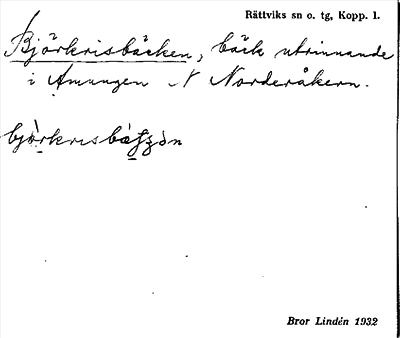 Rättviks sn o. tg, Kopp. l.
Björkrisbäcken, bäck utrinnande
i Amungen N Norderåkern.
Bror Lindén 1932